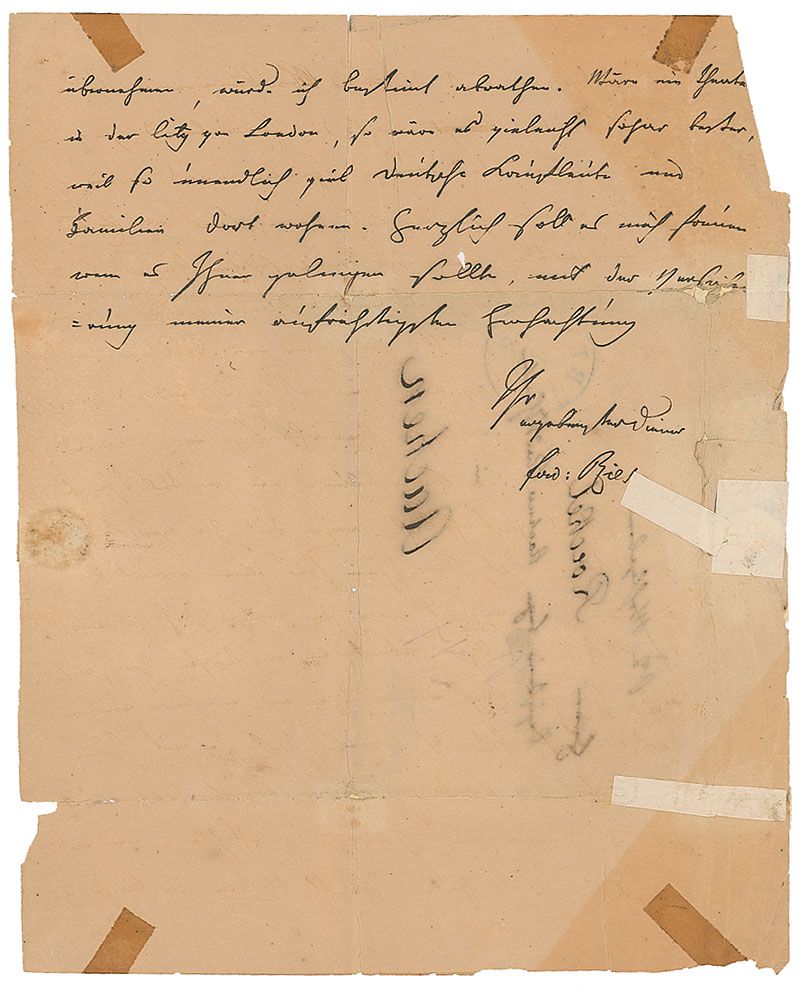 übernehmen, würde ich bestimt abrathen. Wäre ein Theate
in der City von London, so wäre es vieleicht sogar besser,
weil so unendlich viel Deutsche Kaufleute und
Familien dort wohnen. Herzlich soll es mich freuen
wenn es Ihnen gelingen sollte, mit der Versiche
=rung meiner aufrichtigsten Hochachtung
Ihr
ergebenster Diener
Ferd: Ries
Aachen